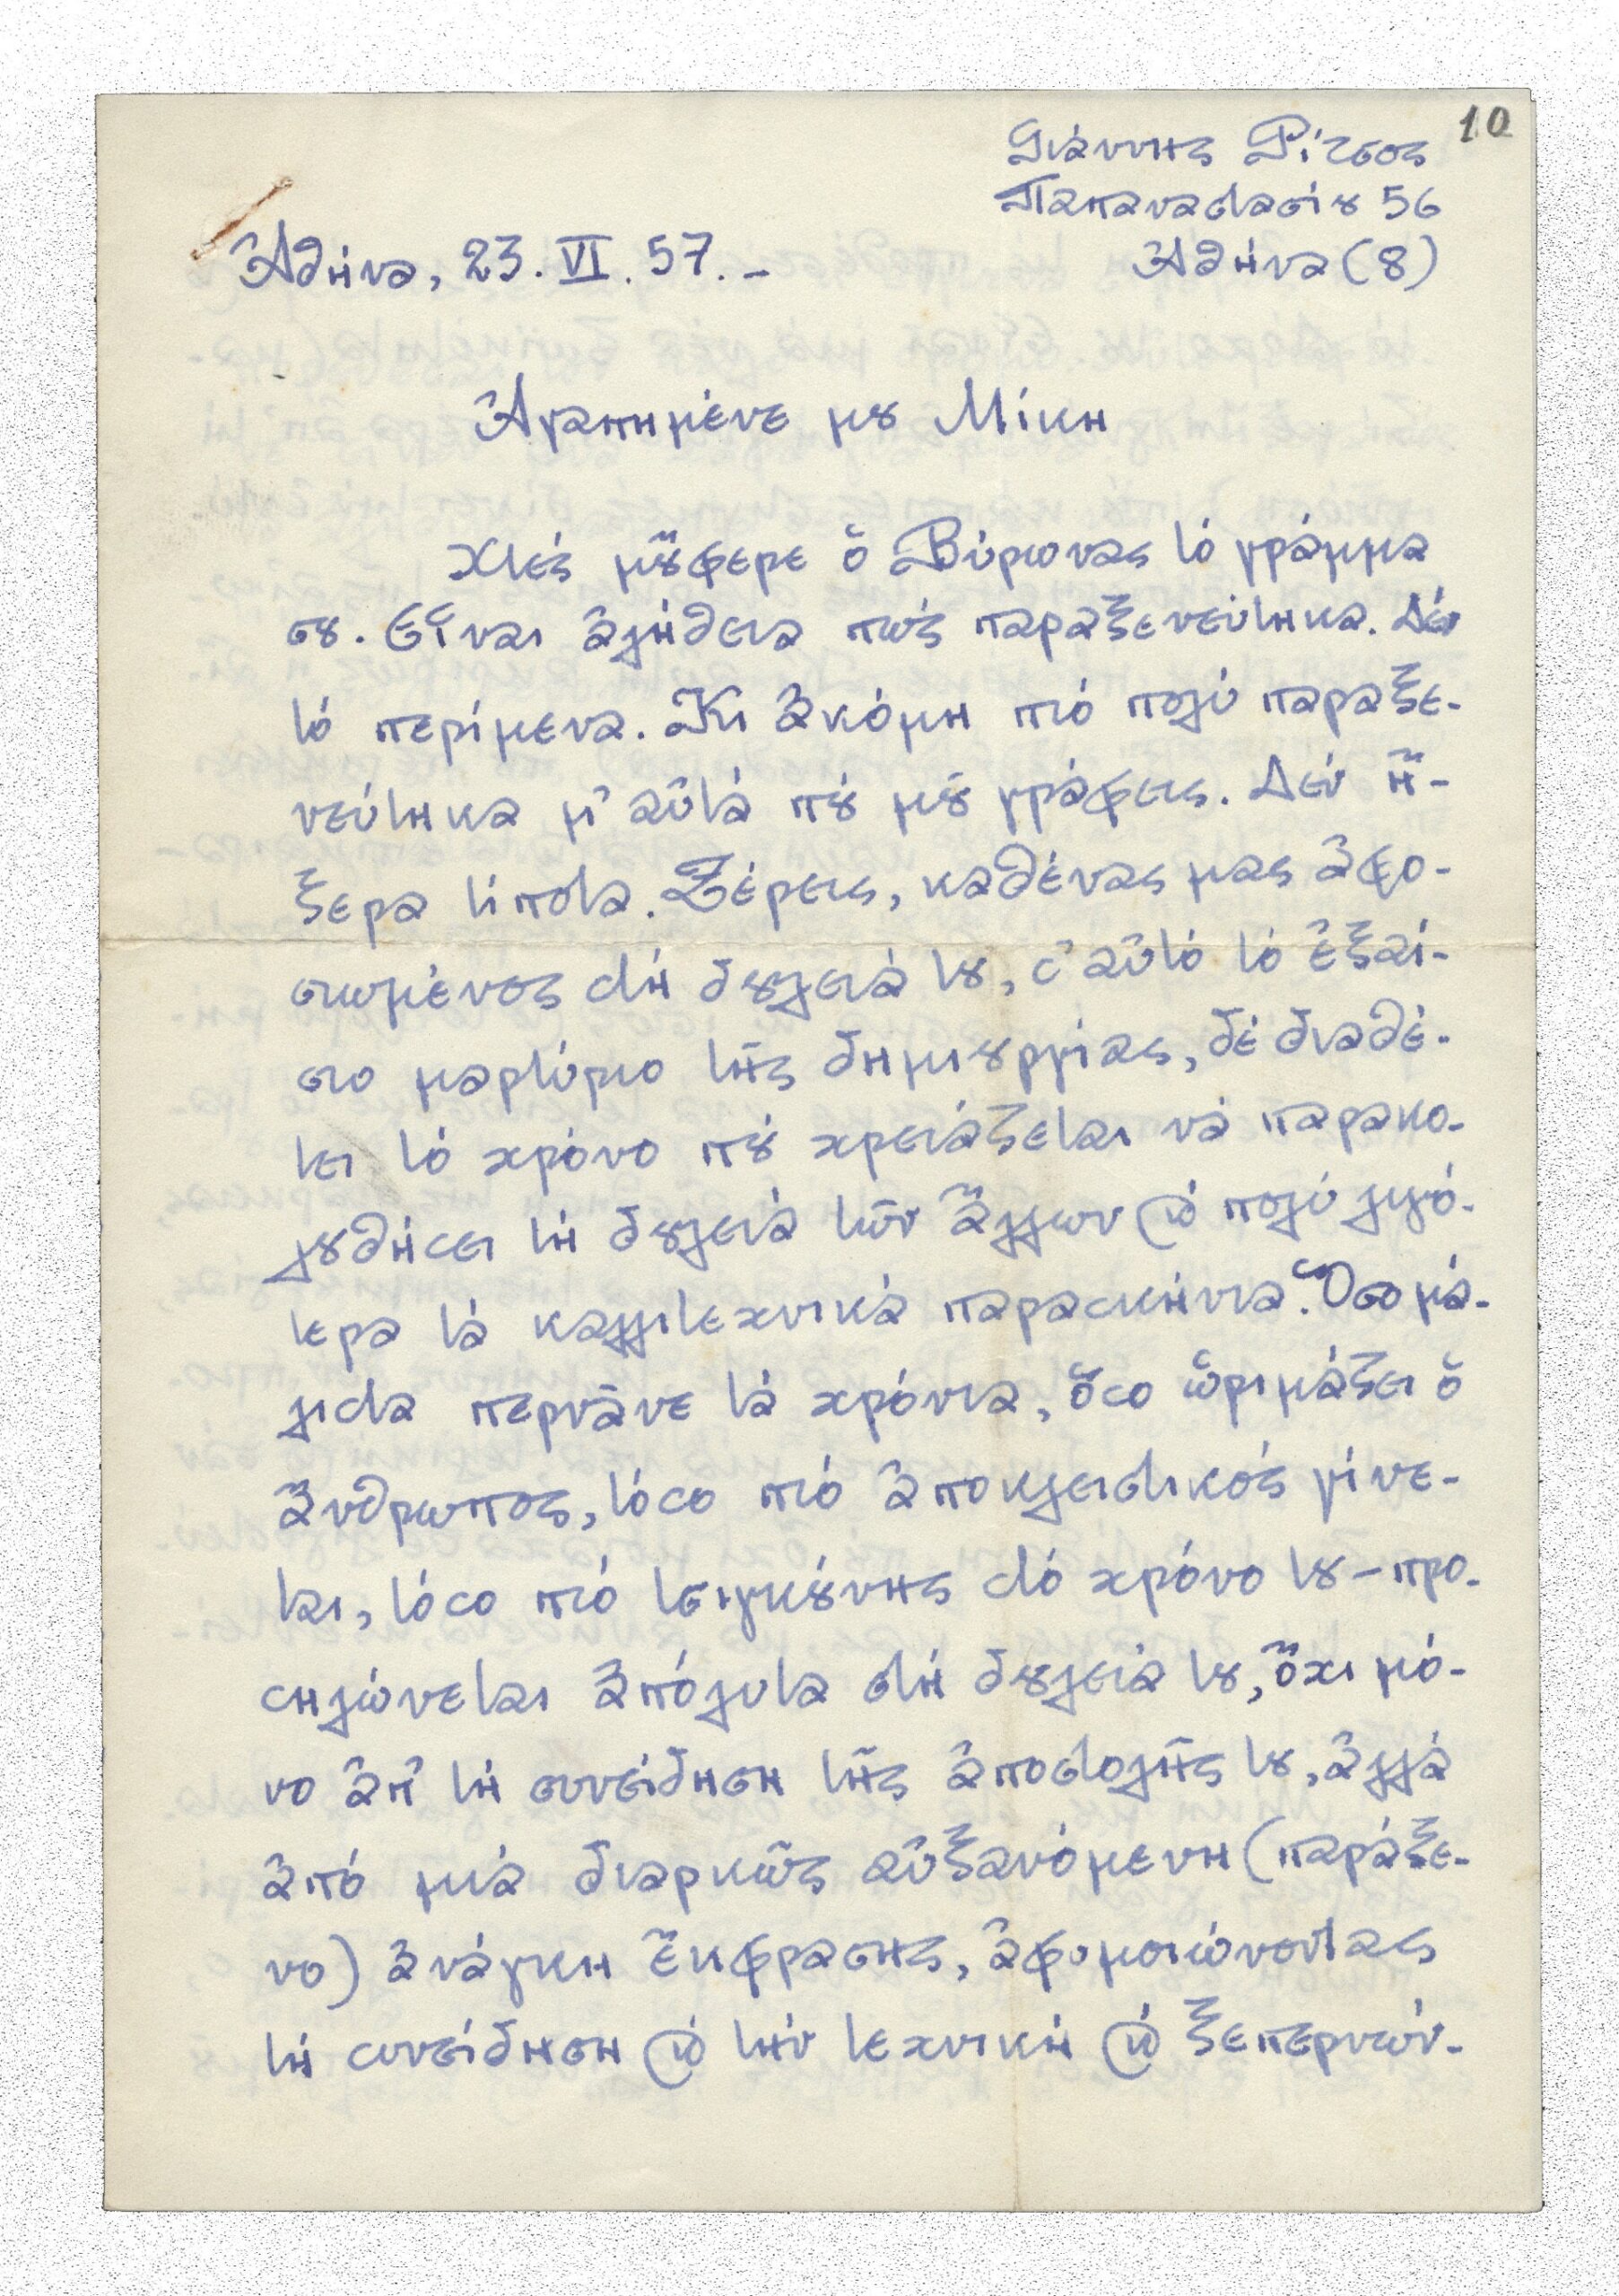 10
Γιάννης Ρίτσος
Παπαναστασίου 56
Ἀθήνα, 23. VI. 57. - Ἀθήνα (8)
Ἀγαπημένε μου Μίκη
Χτές μοὔφερε ὁ Βύρωνας τό γράμμα
σου. Εἶναι ἀλήθεια πώς παραξενεύτηκα. Δέν
τό περίμενα. Κι ἀκόμη πιό πολύ παραξε-
νεύτηκα μ' αὐτά πού μοῦ γράφεις. Δέν ἤ-
ξερα τίποτα. Ξέρεις, καθένας μας ἀφο-
σιωμένος στή δουλειά του, σ' αὐτό τό ἐξαί-
σιο μαρτύριο τῆς δημιουργίας, δέ διαθέ-
τει τό χρόνο πού χρειάζεται νά παρακο-
λουθήσει τή δουλειά τῶν ἄλλων καί πολύ λιγό-
τερα τά καλλιτεχνικά παρασκήνια. Ὅσο μά-
λιστα περνᾶνε τά χρόνια, ὅσο ὡριμάζει ὁ
ἄνθρωπος, τόσο πιό ἀποκλειστικός γίνε-
ται, τόσο πιό τσιγκούνης στό χρόνο του – προ-
σηλώνεται ἀπόλυτα στή δουλειά του, ὄχι μό-
νο ἀπ' τή συνείδηση τῆς ἀποστολῆς του, ἀλλά
ἀπό μιά διαρκῶς αὐξανόμενη (παράξε-
νο) ἀνάγκη ἔκφρασης, ἀφομοιώνοντας
τή συνείδηση καί τήν τεχνική καί ξεπερνών-